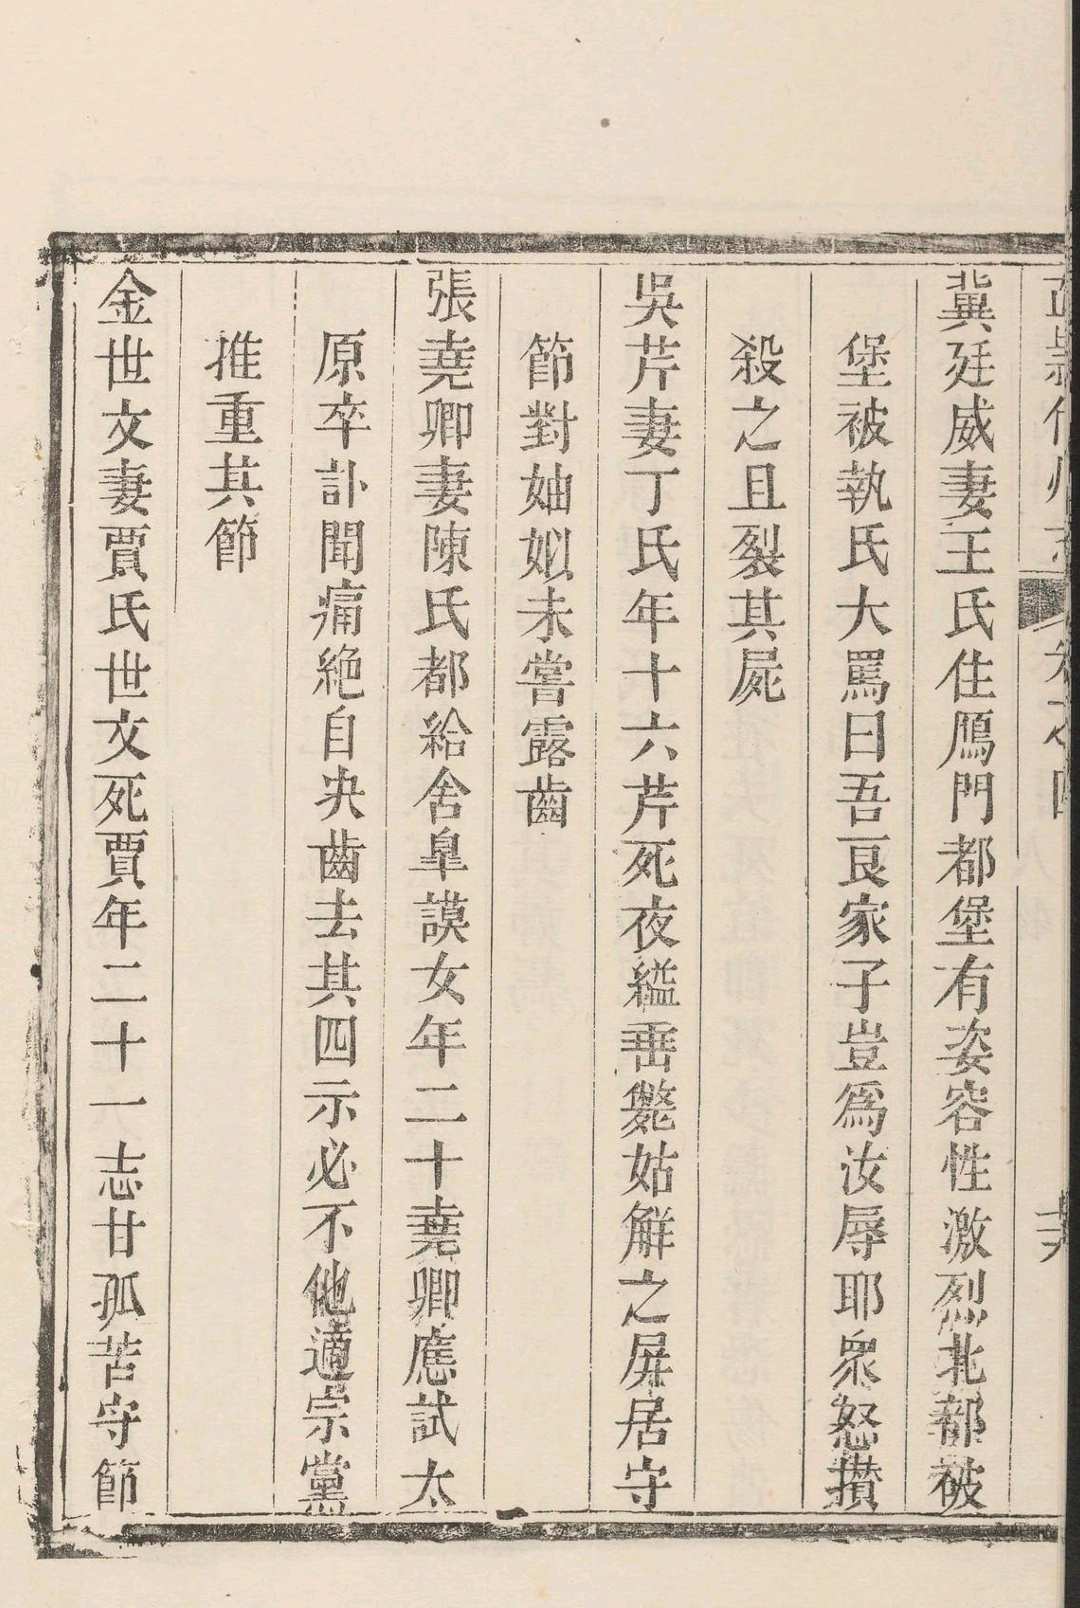 冀廷威妻王氏住鴈門都堡有姿容性激烈北都被
堡被執氏大罵曰吾良家子豈爲汝辱耶衆怒攢
殺之且裂其屍
吳芹妻丁氏年十六芹死夜縊垂斃姑解之屏居守
節對妯娌未嘗露齒
張堯卿妻陳氏都給舍臯謨女年二十堯卿應試太
原卒訃聞痛絶自夬齒去其四示必不他適宗黨
推重其節
金世文妻賈氏世文死賈年二十一志甘孤苦守節